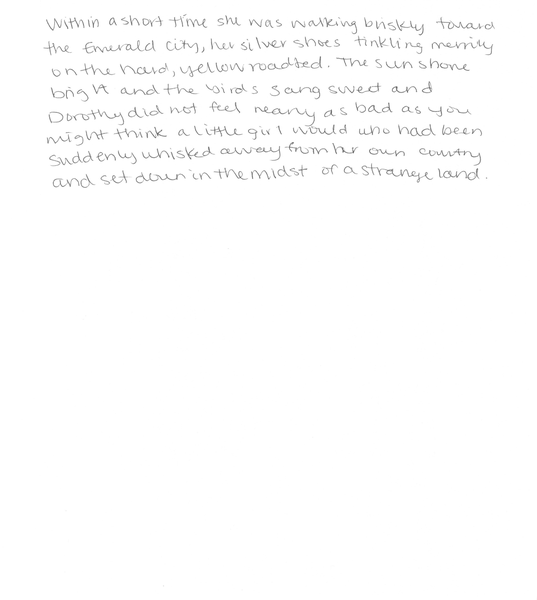 Within a short time she was walking briskly toward
the Emerald City, her silver shoes tinkling merrily
on the hard, yellow roadbed. The sun shone
bright and the birds sang sweet and
Dorothy did not feel nearly as bad as you
might think a little girl would who had been
suddenly whisked away from her own country
and set down in the midst of a strange land.